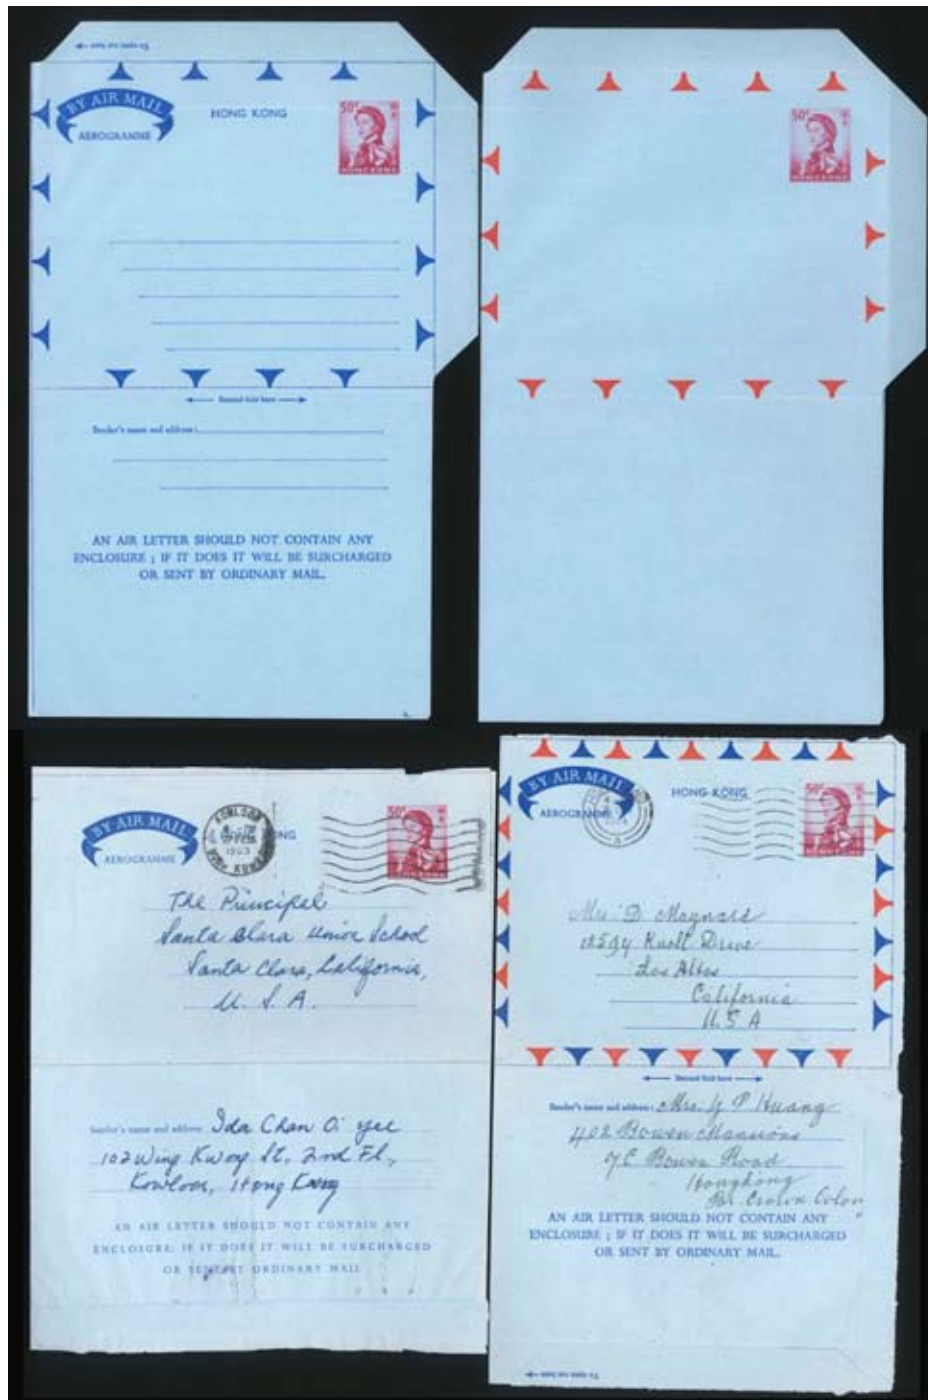 To open cut here
BY AIR MAIL
AEROGRAMME
HONG KONG
50c
HONG KONG
Second fold here
Sender's name and address:
AN AIR LETTER SHOULD NOT CONTAIN ANY
ENCLOSURE ; IF IT DOES IT WILL BE SURCHARGED
OR SENT BY ORDINARY MAIL.
50c
HONG KONG
BY AIR MAIL
AEROGRAMME
KOWLOON
1963
HONG KONG
NG
50c
HONG KONG
The Principal
Santa Clara Union School
Santa Clara, California,
U. S. A.
Sender's name and address:
Ida Chan
102 Wing Kwong St., 2nd Fl.,
Kowloon, Hong Kong
AN AIR LETTER SHOULD NOT CONTAIN ANY
ENCLOSURE; IF IT DOES IT WILL BE SURCHARGED
OR SENT BY ORDINARY MAIL
BY AIR MAIL
AEROGRAMME
HONG KONG
50c
HONG KONG
Mrs. D. Maynard
Knoll Drive
Los Altos
California
U.S A
Second fold here
Sender's name and address: Mrs. Y P Huang
402 Bowen Mansions
7C Bowen Road
Hongkong
Br. Crown Colon
AN AIR LETTER SHOULD NOT CONTAIN ANY
ENCLOSURE ; IF IT DOES IT WILL BE SURCHARGED
OR SENT BY ORDINARY MAIL.
To open cut here